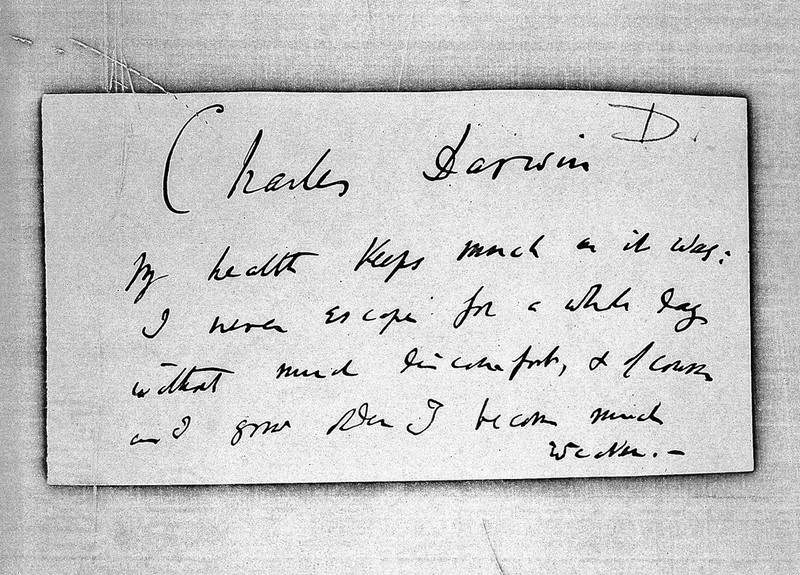 D.
Charles Darwin
My health keeps much as it was:
I never escape for a whole day
without much discomfort, & of course
as I grow older I become much
weaker.—